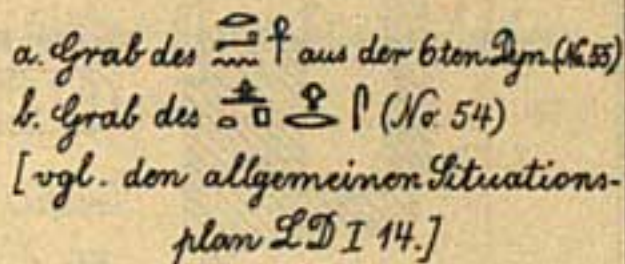 a. Grab des 𓂋𓂝𓈖𓋹 aus der 6ten Dyn. (No. 55)
b. Grab des 𓊵𓏏𓊪𓁷𓂋𓋴 (No. 54)
[vgl. den allgemeinen Situations-
plan LD I 14.]